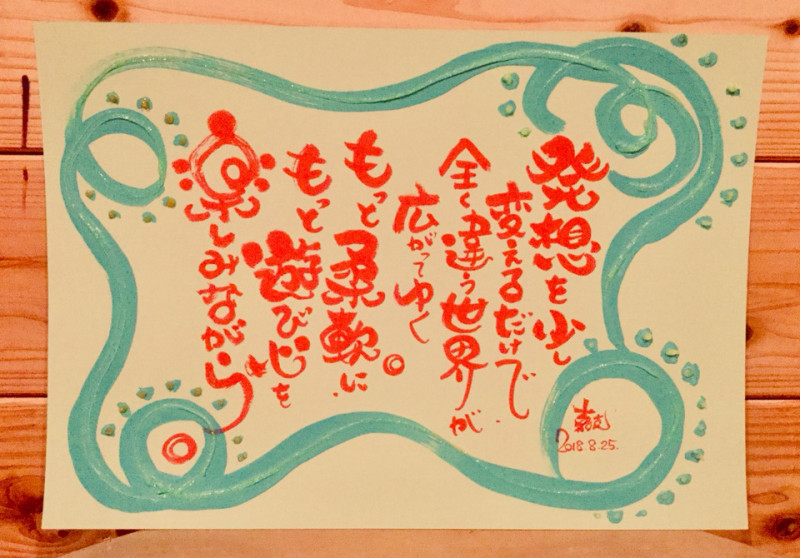 発想を少し
変えるだけで
全く違う世界が
広がってゆく。
もっと柔軟に
もっと遊び心を
楽しみながら
2018.8.25.